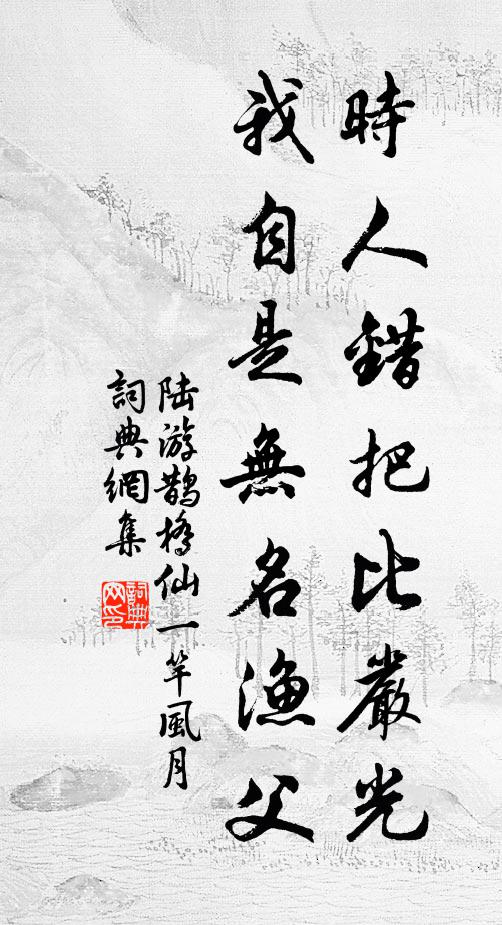 時人錯把比嚴光
我自是無名漁父
陆游鹊橋仙一竿風月
詞典網集
詞典网印